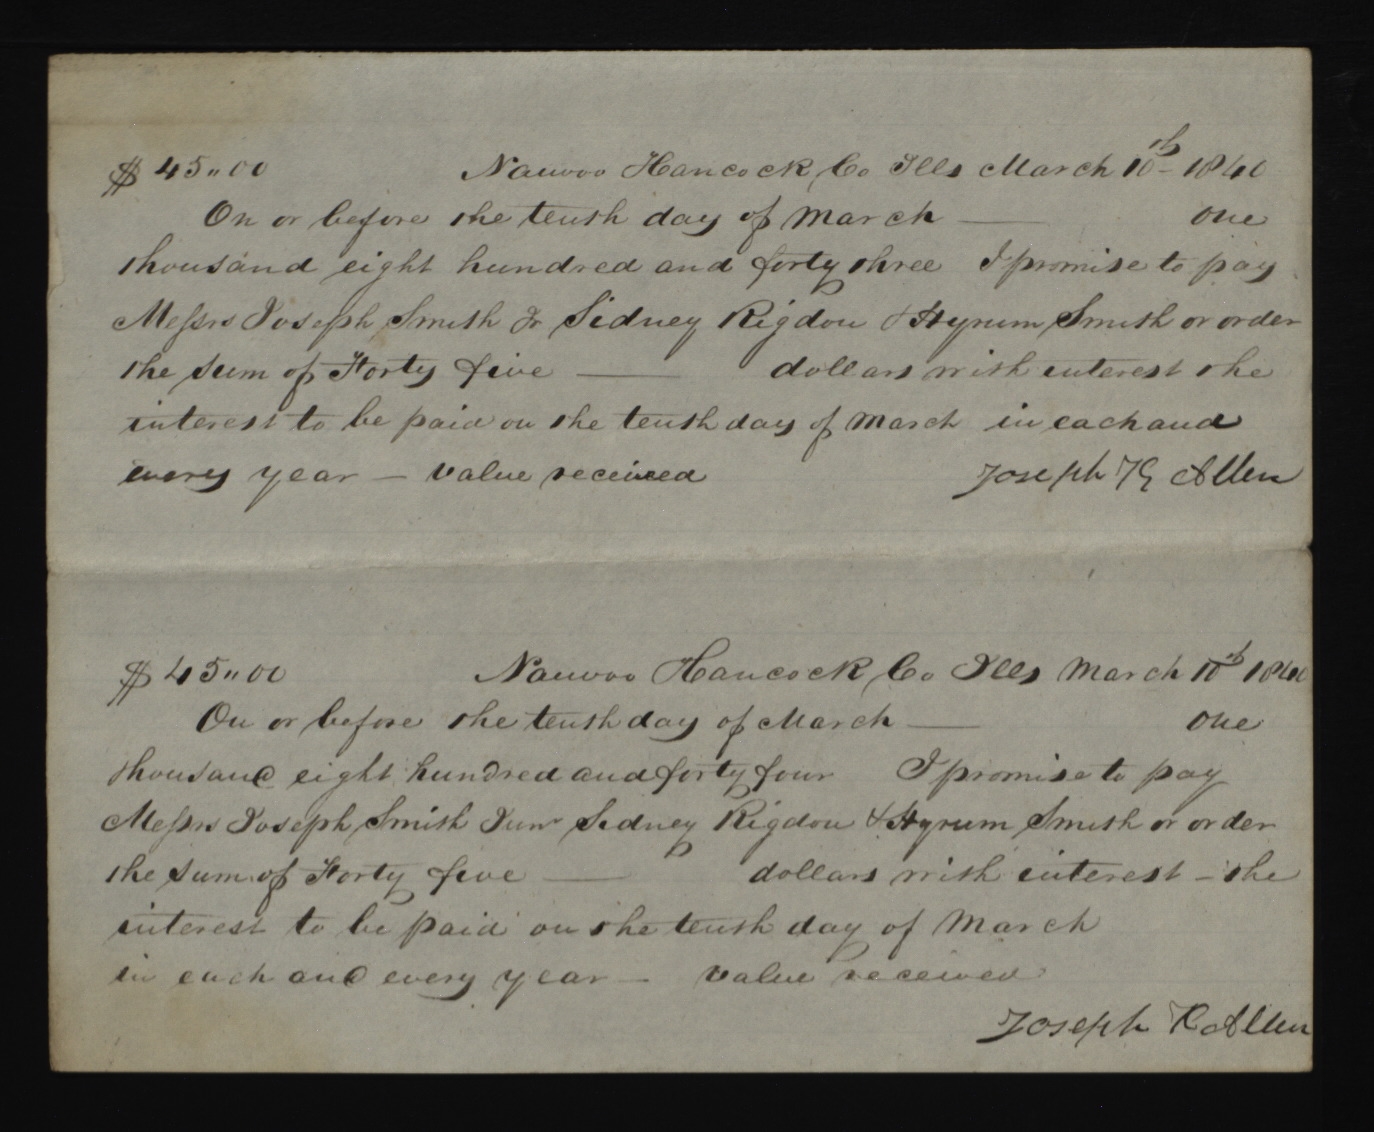 $45"00 Nauvoo Hancock Co Ills March 10th 1840
On or before the tenth day of March — one
thousand eight hundred and forty three I promise to pay
Messrs Joseph Smith Jr Sidney Rigdon & Hyrum Smith or order
the sum of Forty five — dollars with interest the
interest to be paid on the tenth day of March in each and
every year – value received Joseph Allen
$45"00 Nauvoo Hancock Co Ills March 10th 1840
On or before the tenth day of March — one
thousand eight hundred and forty four I promise to pay
Messrs Joseph Smith Junr Sidney Rigdon & Hyrum Smith or order
the sum of Forty five — dollars with interest – the
interest to be paid on the tenth day of March
in each and every year – value received
Joseph Allen